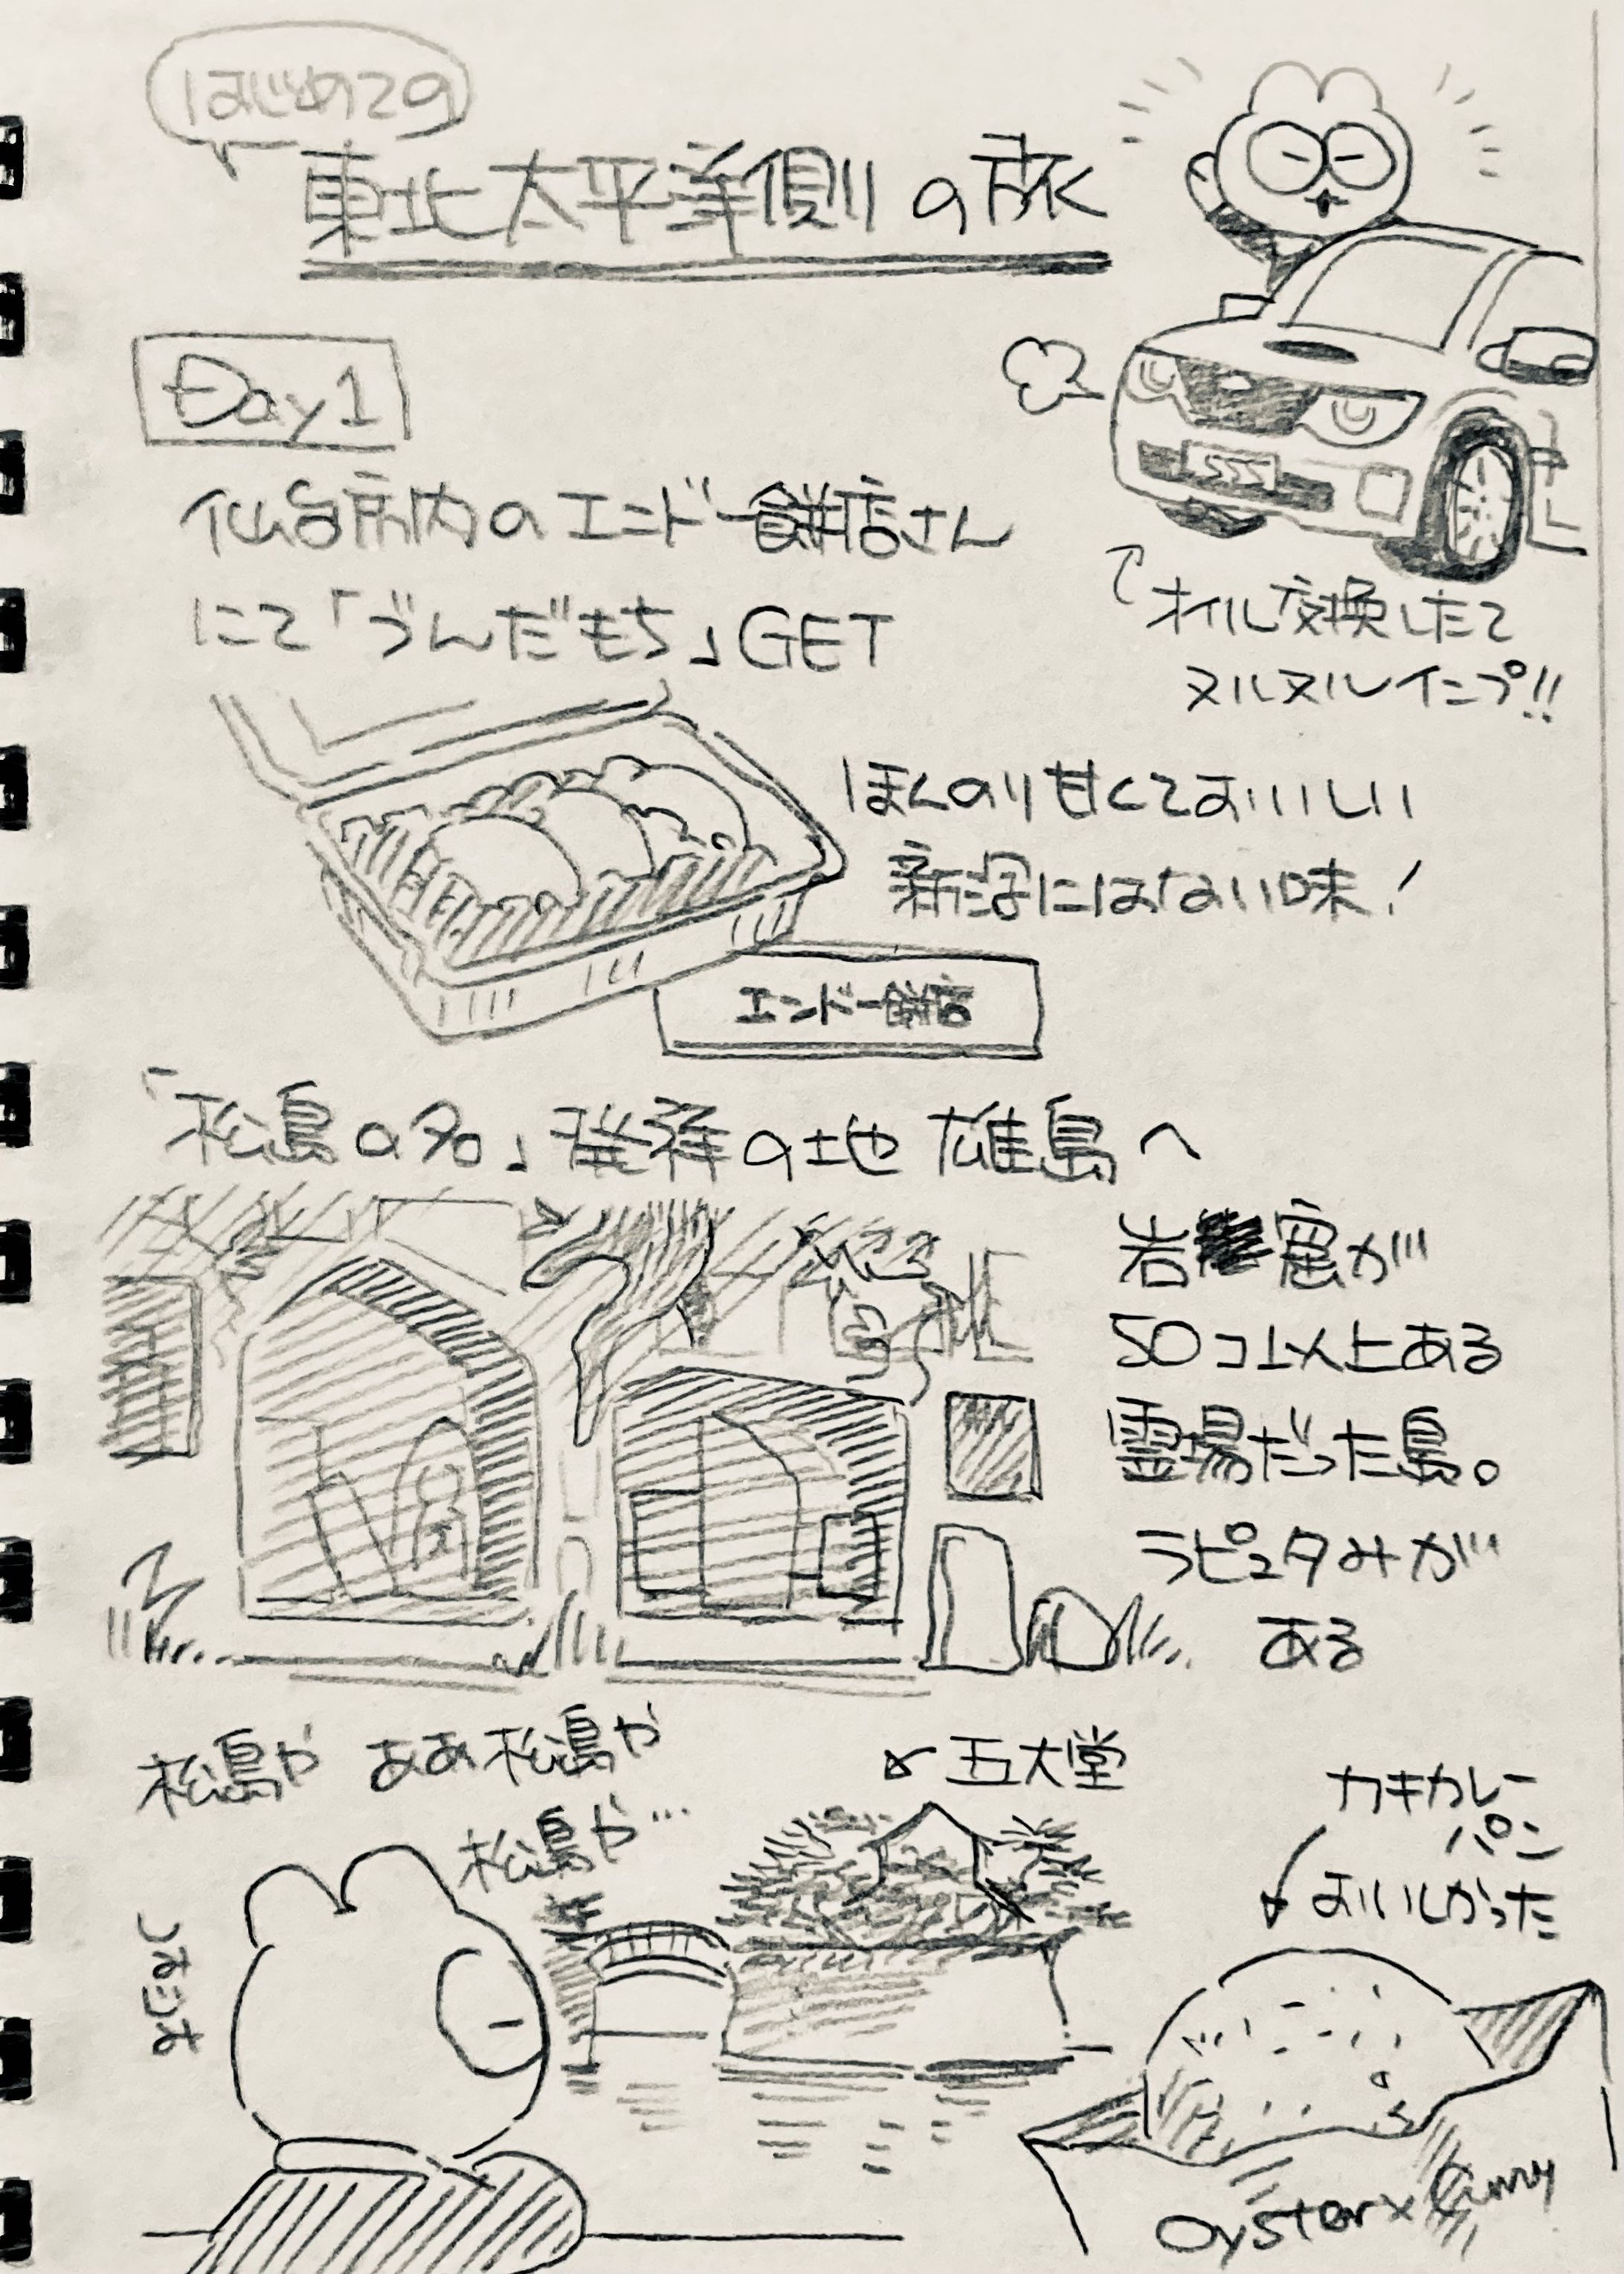 はじめての
東北太平洋側の旅
Day1
仙台市内のエンドー餅店さん
にて「づんだもち」GET
オイル交換したて
ヌルヌルインプ!!
SSS
ほんのり甘くておいしい
新潟にはない味!
エンドー餅店
「松島の名」発祥の地 雄島へ
岩窟が
50コ以上ある
霊場だった島。
ラピュタみが
ある
松島や ああ松島や
松島や…
しみじみ
五大堂
カキカレー
パン
おいしかった
Oyster×Curry